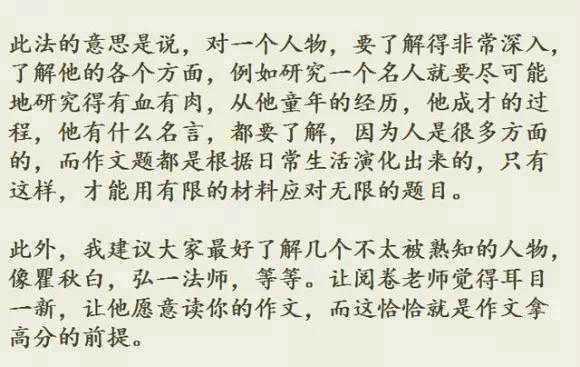 此法的意思是说，对一个人物，要了解得非常深入，
了解他的各个方面，例如研究一个名人就要尽可能
地研究得有血有肉，从他童年的经历，他成才的过
程，他有什么名言，都要了解，因为人是很多方面
的，而作文题都是根据日常生活演化出来的，只有
这样，才能用有限的材料应对无限的题目。
此外，我建议大家最好了解几个不太被熟知的人物，
像瞿秋白，弘一法师，等等。让阅卷老师觉得耳目
一新，让他愿意读你的作文，而这恰恰就是作文拿
高分的前提。